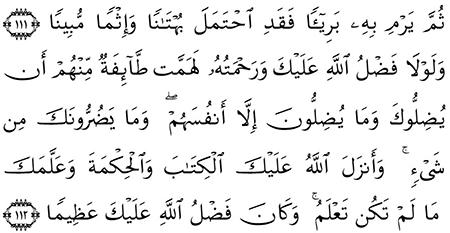 ثُمَّ يَرْمِ بِهِۦ بَرِيٓـًٔا فَقَدِ ٱحْتَمَلَ بُهْتَـٰنًا وَإِثْمًا مُّبِينًا ١١١
وَلَوْلَا فَضْلُ ٱللَّهِ عَلَيْكَ وَرَحْمَتُهُۥ لَهَمَّت طَّآئِفَةٌ مِّنْهُمْ أَن
يُضِلُّوكَ وَمَا يُضِلُّونَ إِلَّآ أَنفُسَهُمْ ۖ وَمَا يَضُرُّونَكَ مِن
شَىْءٍ ۚ وَأَنزَلَ ٱللَّهُ عَلَيْكَ ٱلْكِتَـٰبَ وَٱلْحِكْمَةَ وَعَلَّمَكَ
مَا لَمْ تَكُن تَعْلَمُ ۚ وَكَانَ فَضْلُ ٱللَّهِ عَلَيْكَ عَظِيمًا ١١٣